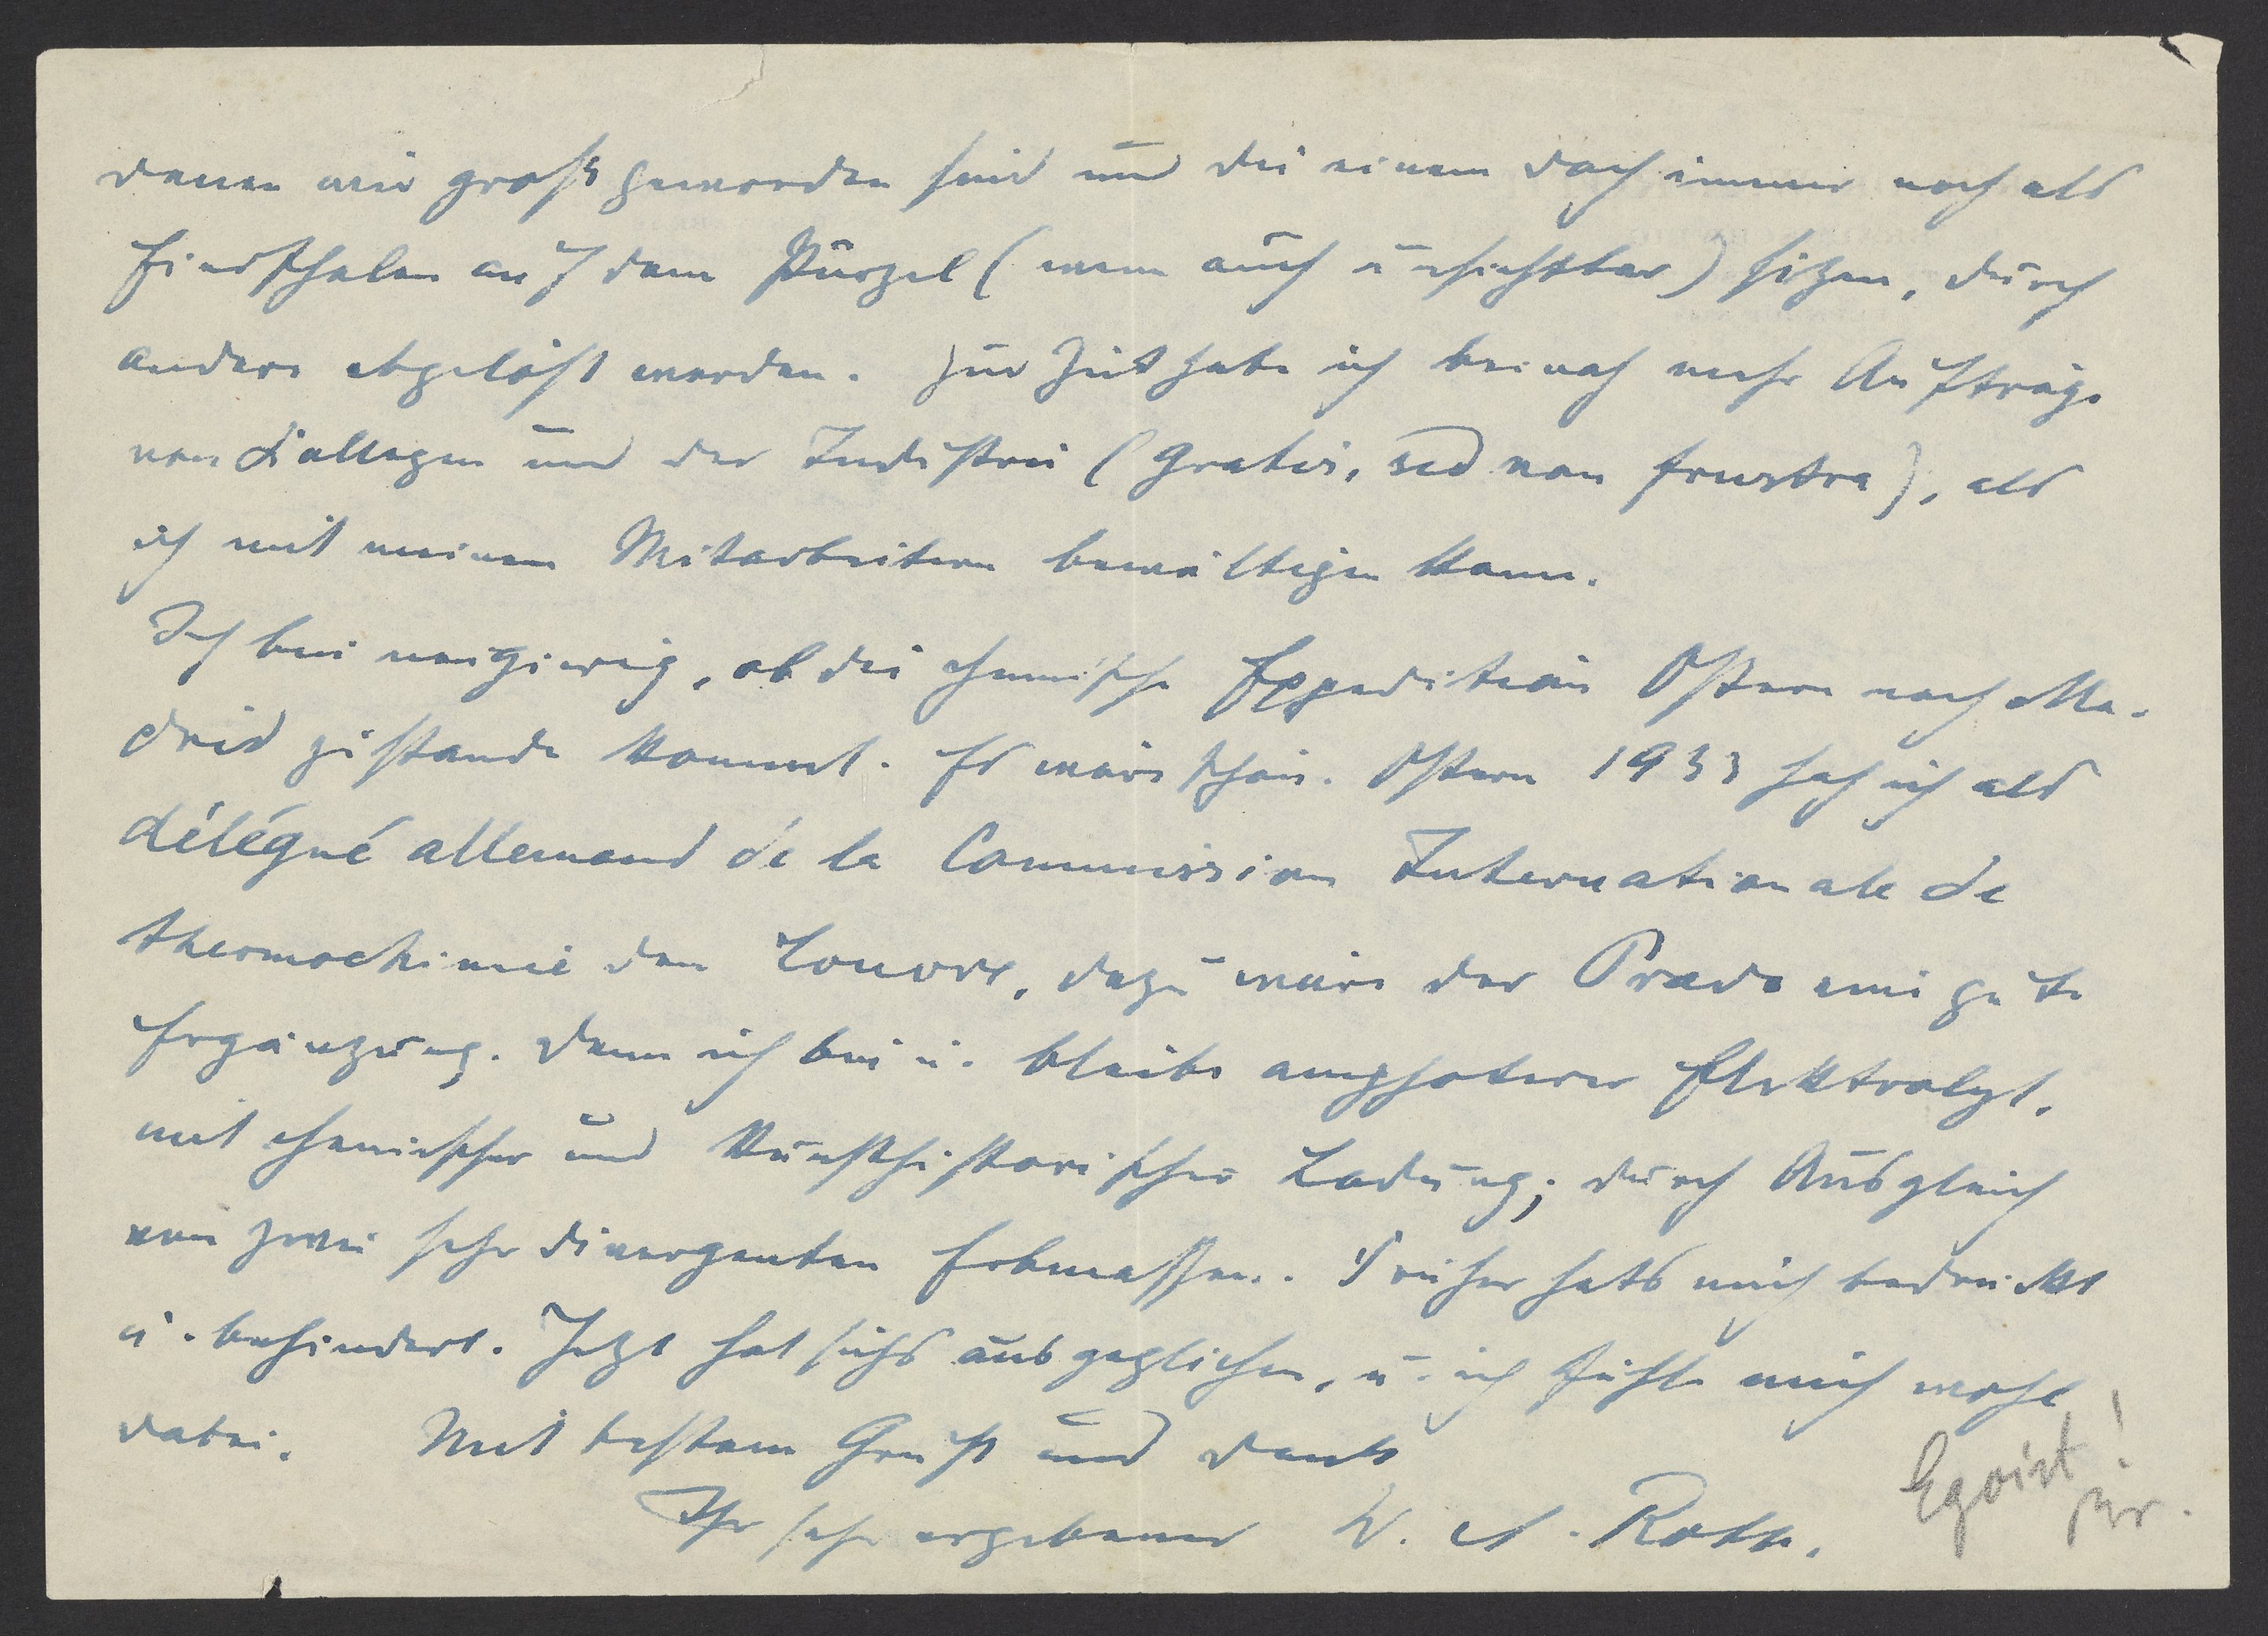 denen wir gross geworden sind und die einem doch immer noch als
Eierschalen auf dem Pürzel (wenn auch unsichtbar) sitzen, durch
andere abgelöst werden. Zur Zeit habe ich beinah mehr Aufträge
von Kollegen und der Industrie (gratis, sed non frustra), als
ich mit meinen Mitarbeitern bewältigen kann.
Ich bin neugierig, ob die chemische Expedition Ostern nach Ma-
drid zustande kommt. Es wäre schön. Ostern 1933 sah ich als
délégué allemand de la Commission Internationale de
thermochimie den Louvre, dazu wäre der Prado eine gute
Ergänzung. Denn ich bin u. bleibe amphoterer Elektrolyt,
mit chemischer und kunsthistorischer Ladung; durch Ausgleich
von zwei sehr divergenten Erbmassen. Früher hats mich bedrückt
u. behindert. Jetzt hat sichs ausgeglichen, u. ich fühle mich wohl
dabei. Mit bestem Gruss und Dank
Ihr sehr ergebener W. A. Roth.
Egoist!